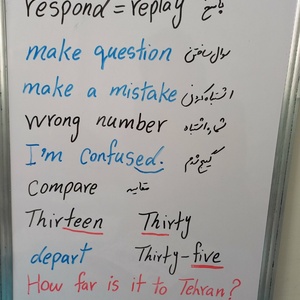 respond = replay پاسخ
make question سوال ساختن
make a mistake اشتباه کردن
wrong number شماره اشتباه
I'm confused. گیج شدم
compare مقایسه
Thirteen Thirty
depart Thirty-five
How far is it to Tehran?